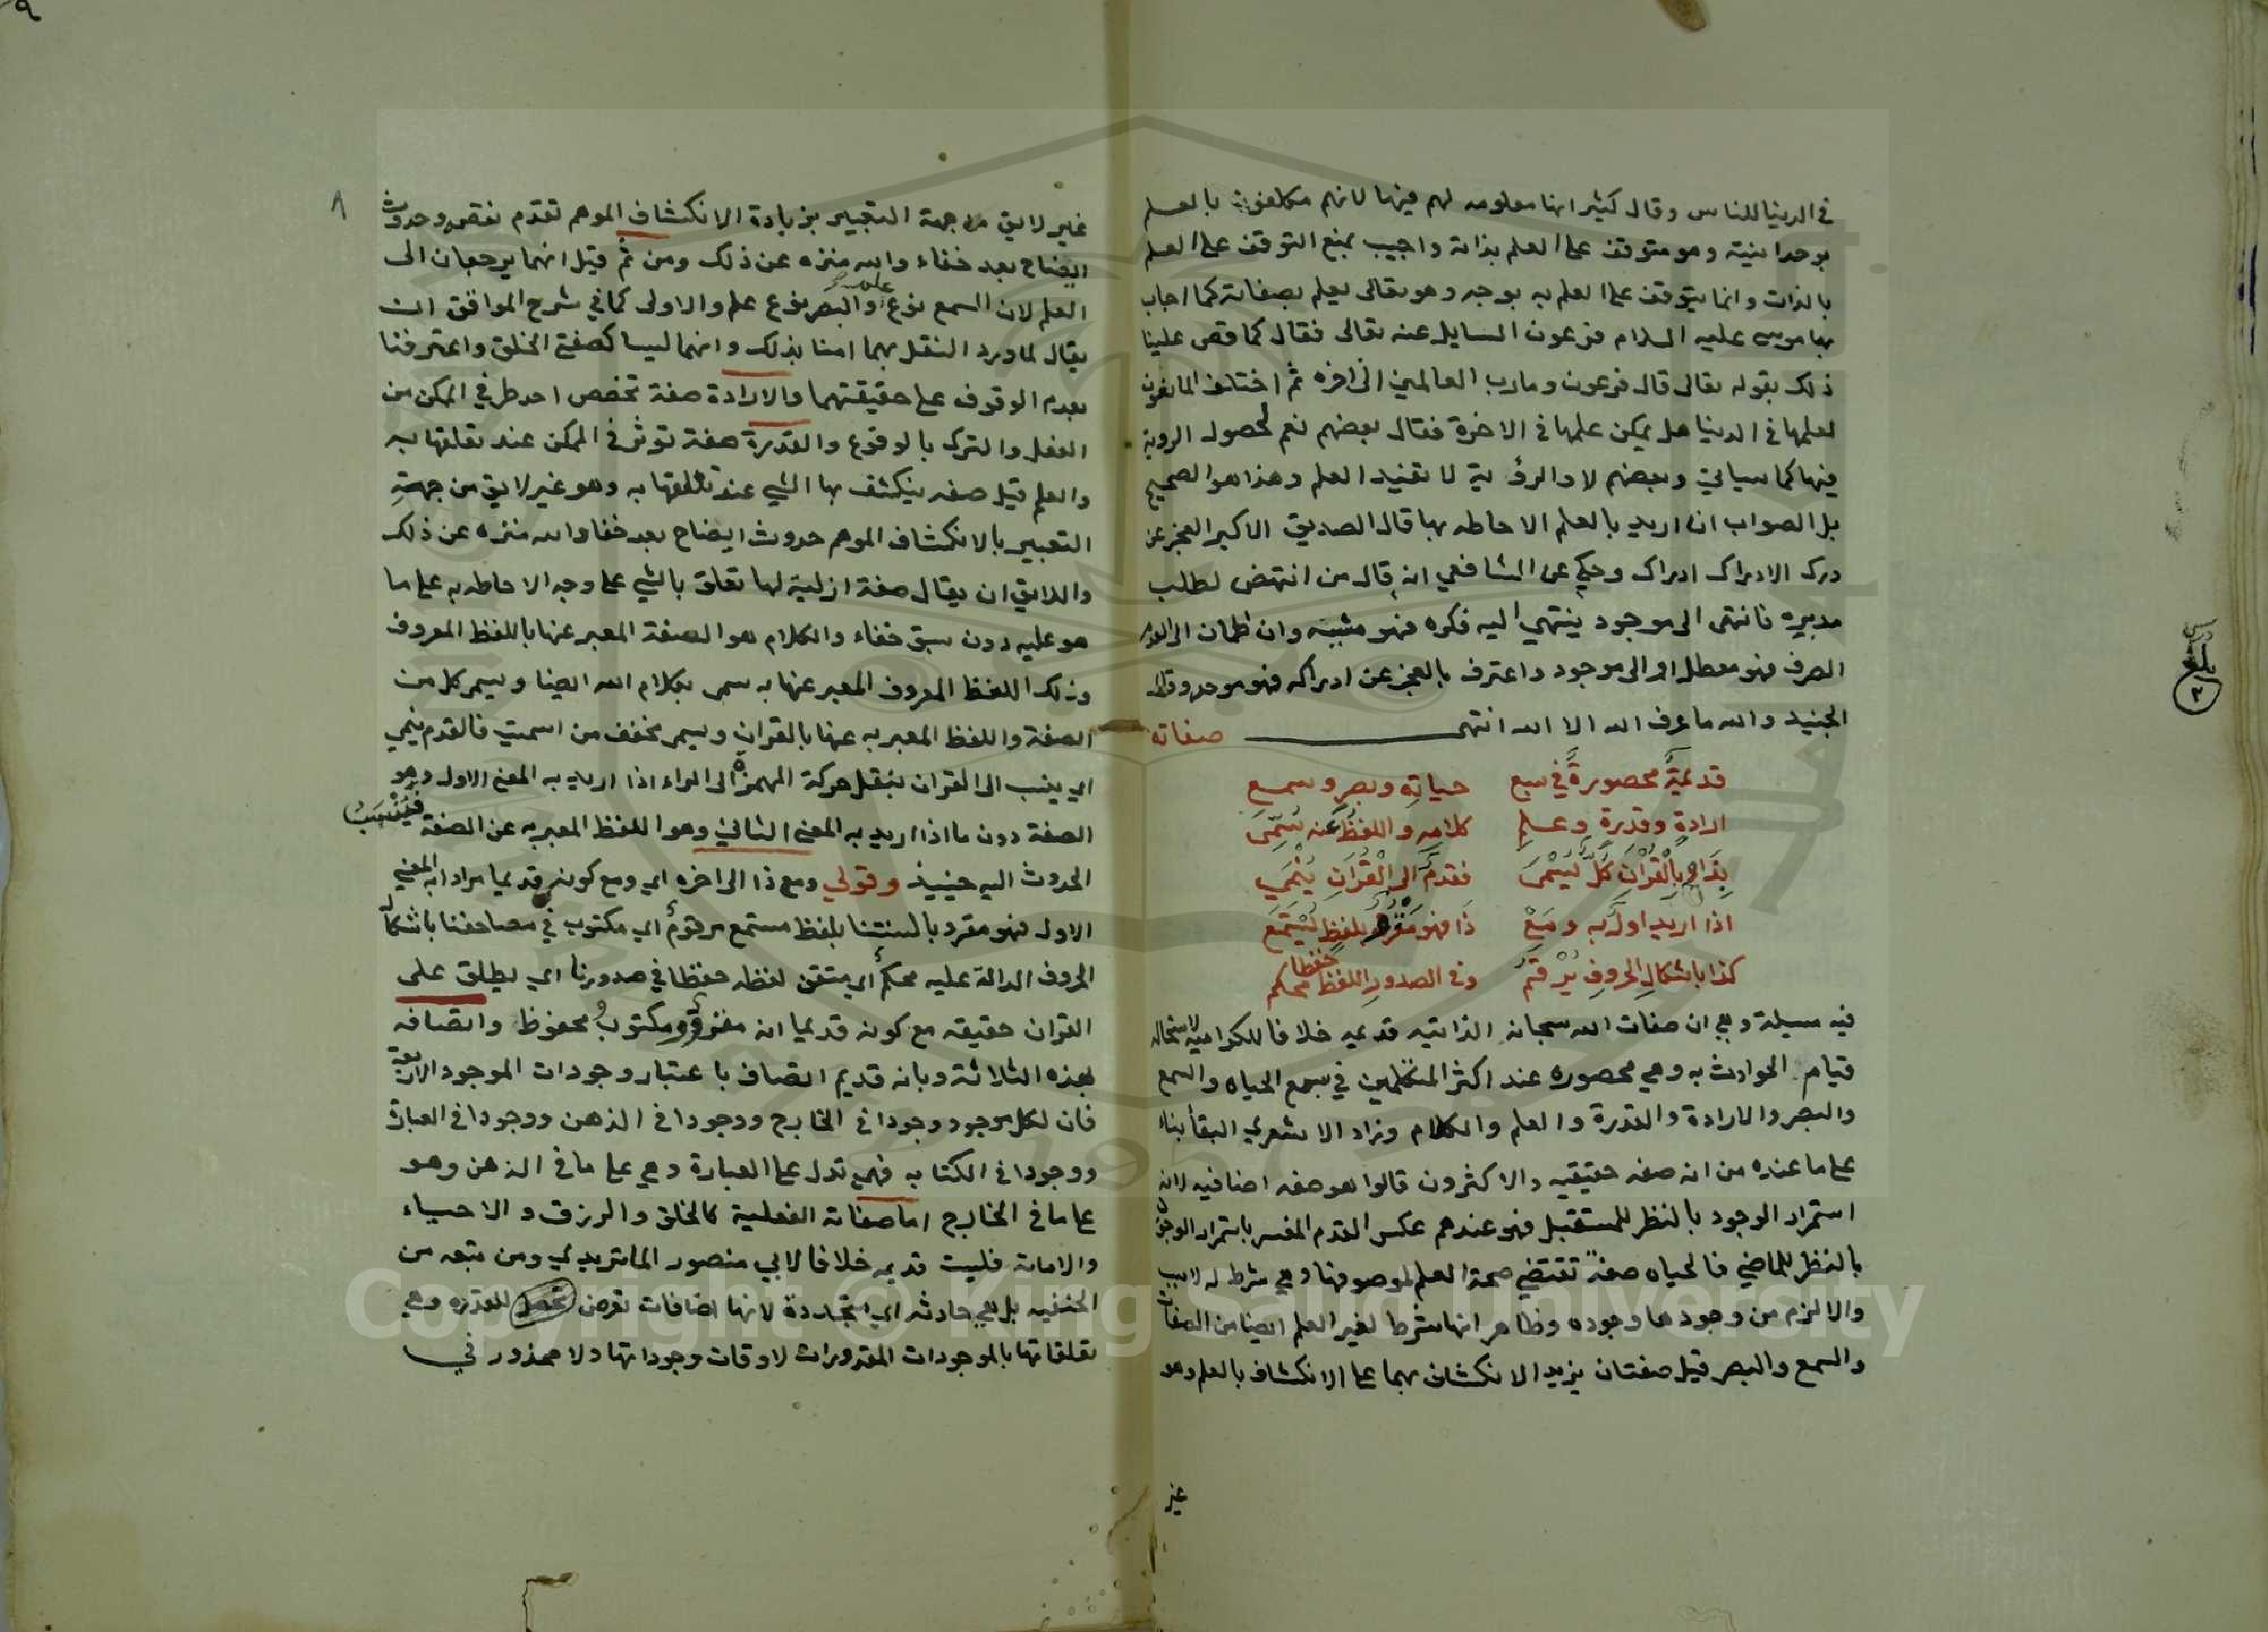 في الدنيا للناس وقال كثير انها معلومه لهم فيها لانهم مكلفون بالعلم
بوحدانيته وهو متوقف على العلم بذاته واجيب بمنع التوقف على العلم
بالذات وانما يتوقف على العلم به بوجه وهو تعالى يعلم بصفاته كما اجاب
بها موسى عليه السلام فرعون السايل عنه تعالى فقال كما قص علينا
ذلك بقوله تعالى قال فرعون وما رب العالمين الى اخره ثم اختلف المانعون
لعلمها في الدنيا هل يمكن علمها في الاخرة فقال بعضهم نعم لحصول الروية
فيها كما سياتي وبعضهم لا والرؤية لا تفيد العلم وهذا هو الصحيح
بل الصواب ان اريد بالعلم الاحاطه بها قال الصديق الاكبر العجز عن
درك الادراك ادراك وحكي عن الشافعي انه قال من انتهض لطلب
مدبره فانتهى الى موجود ينتهي اليه فكره فهو مشبه وان اطمان الى العدم
الصرف فهو معطل او الى موجود واعترف بالعجز عن ادراكه فهو موحد وقال
الجنيد والله ما عرف الله الا الله انتهى صفاته
قديمة محصورة في سبع حياته وبصر وسمع
ارادة وقدرة وعلم كلامه واللفظ عنه سمي
بذا وبالقران كل يسمى فقدم الى القران ينمي
اذا اريد اول به ومع ذا فهو مقرو بلفظ يستمع
كذا باشكال الحروف يرقم وفي الصدور اللفظ حفظا محكم
فيه مسيلة وهي ان صفات الله سبحانه الذاتيه قديمه خلافا للكراميه لاستحاله
قيام الحوادث به وهي محصوره عند اكثر المتكلمين في سبع الحياه والسمع
والبصر والارادة والقدرة والعلم والكلام وزاد الاشعري البقا بناء
على ما عنده من انه صفه حقيقيه والاكثرون قالوا هو صفه اضافيه لانه
استمرار الوجود بالنظر للمستقبل فهو عندهم عكس القدم المفسر باستمرار الوجود
بالنظر للماضي فالحياه صفة تقتضي صحة العلم لموصوفها وهي شرط له لا سبب
والا لزم من وجودها وجوده وظاهر انها شرط لغير العلم ايضا من الصفات
والسمع والبصر قيل صفتان يزيد الانكشاف بهما على الانكشاف بالعلم وهو
غير
بلغ
٢
٩
٨
غير لايق من جهة التعبير بزيادة الانكشاف الموهم تقدم نقص وحدوث
ايضاح بعد خفاء والله منزه عن ذلك ومن ثم قيل انهما يرجعان الى
العلم لان السمع نوع علم والبصر نوع علم والاولى كما في شرح المواقف ان
يقال لما ورد النقل بهما امنا بذلك وانهما ليسا كصفتي الخلق واعترفنا
بعدم الوقوف على حقيقتهما والارادة صفة تخصص احد طرفي الممكن من
الفعل والترك بالوقوع والقدرة صفة توثر في الممكن عند تعلقها به
والعلم قيل صفه ينكشف بها الشي عند تعلقها به وهو غير لايق من جهة
التعبير بالانكشاف الموهم حدوث ايضاح بعد خفا والله منزه عن ذلك
واللايق ان يقال صفة ازلية لها تعلق بالشي على وجه الاحاطه به على ما
هو عليه دون سبق خفاء والكلام هو الصفة المعبر عنها باللفظ المعروف
وذلك اللفظ المعروف المعبر عنها به سمى بكلام الله ايضا ويسمى كل من
الصفة واللفظ المعبر به عنها بالقران ويسمى مخفف من اسميت فالقدم ينمي
اي ينسب الى القران بنقل حركة الهمزة الى الراء اذا اريد به المعنى الاول وهو
الصفة دون ما اذا اريد به المعنى الثاني وهو اللفظ المعبر به عن الصفة فينسب
الحدوث اليه حينيذ وقولي ومع ذا الى اخره اي ومع كونه قديما مرادا به المعنى
الاول فهو مقرو بالسنتنا بلفظ مستمع مرقوم اي مكتوب في مصاحفنا باشكال
الحروف الدالة عليه محكم اي متقن لفظه حفظا في صدورنا اي يطلق على
القران حقيقه مع كونه قديما انه مقرو ومكتوب محفوظ واتصافه
بهذه الثلاثة وبانه قديم اتصاف باعتبار وجودات الموجود الاربعة
فان لكل موجود وجودا في الخارج ووجودا في الذهن ووجودا في العبارة
ووجودا في الكتابه فهي تدل على العبارة وهي على ما في الذهن وهو
على ما في الخارج اما صفاته الفعلية كالخلق والرزق والاحياء
والاماته فليست قديمه خلافا لابي منصور الماتريدي ومن تبعه من
الحنفيه بل هي حادثه اي متجددة لانها اضافات تعرض للقدره وهي
تعلقاتها بالموجودات المقدورات لاوقات وجوداتها ولا محذور في
Copyright © King Saud University